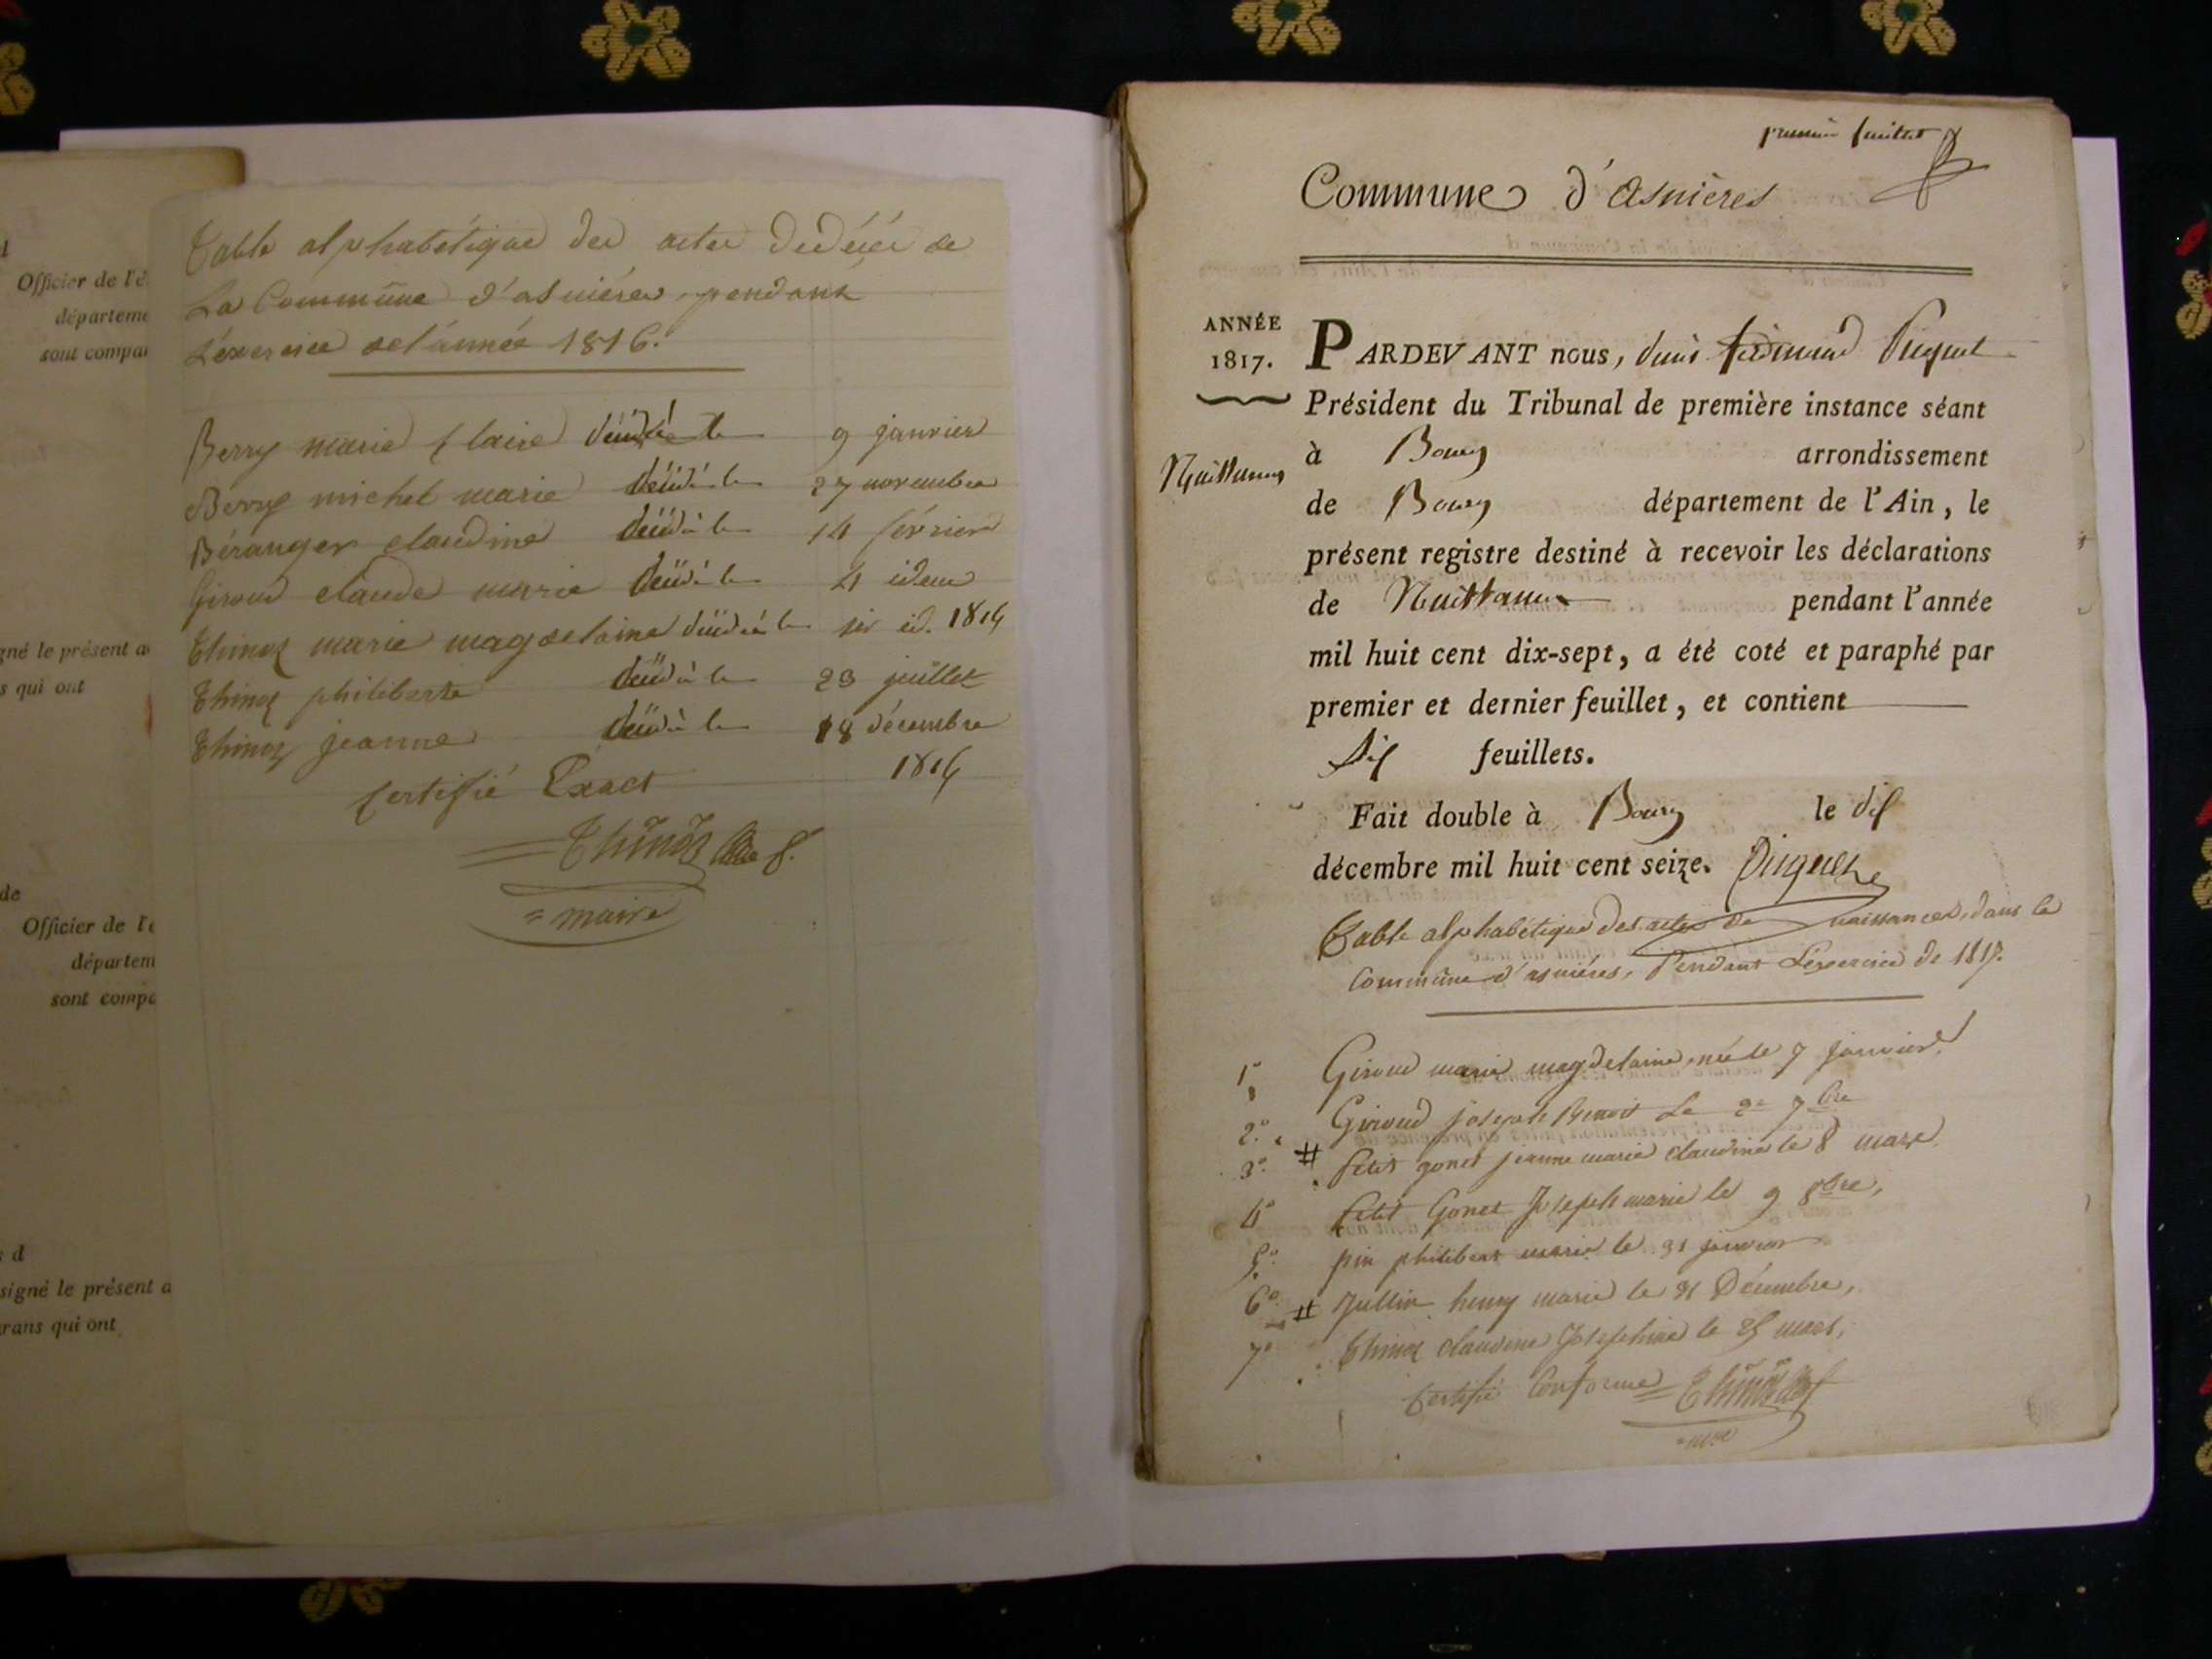 Officier de l'é
départeme
sont compar
gné le présent a
s qui ont
de
Officier de l'é
départem
sont compa
s d
signé le présent a
rans qui ont
Table alphabétique des actes de décés de
La Commune d'asnières, pendant
L'éxercice de l'année 1816.
Berry marie Claire décédé le 9 janvier
Berry michel marie décédé le 27 novembre
Béranger claudine décédé le 14 février
Giroud claude marie décédé le 4 idem
Thinoz marie magdelaine décédé le 1er id. 1816
Thinoz philiberte décédé le 23 juillet
Thinoz jeanne décédé le 18 décembre
1816
Certiffié Exact
Thinoz
= maire
premier feuillet
Commune d'Asnières
ANNÉE
1817.
Naissances
PARDEVANT nous, denis ferdinand Piquet
Président du Tribunal de première instance séant
à Bourg arrondissement
de Bourg département de l'Ain, le
présent registre destiné à recevoir les déclarations
de Naissances pendant l'année
mil huit cent dix-sept, a été coté et paraphé par
premier et dernier feuillet, et contient
Six feuillets.
Fait double à Bourg le dix
décembre mil huit cent seize. Piquet
Table alphabétique des actes de naissances, dans la
Commune d'asnières, Pendant L'éxercice de 1817.
1° Giroud marie magdelaine, née le 7 janvier
2° Giroud joseph Benoit Le 2e 7bre
3° # Petit gonet jeanne marie claudine le 8 mars
4° Petit Gonet Joseph marie le 9 8bre,
5° pin philibert marie le 31 janvier
6° # Jullin henry marie le 31 Décembre,
7° Thinoz claudine Josephine le 25 mars,
Certifié Conforme = Thinoz